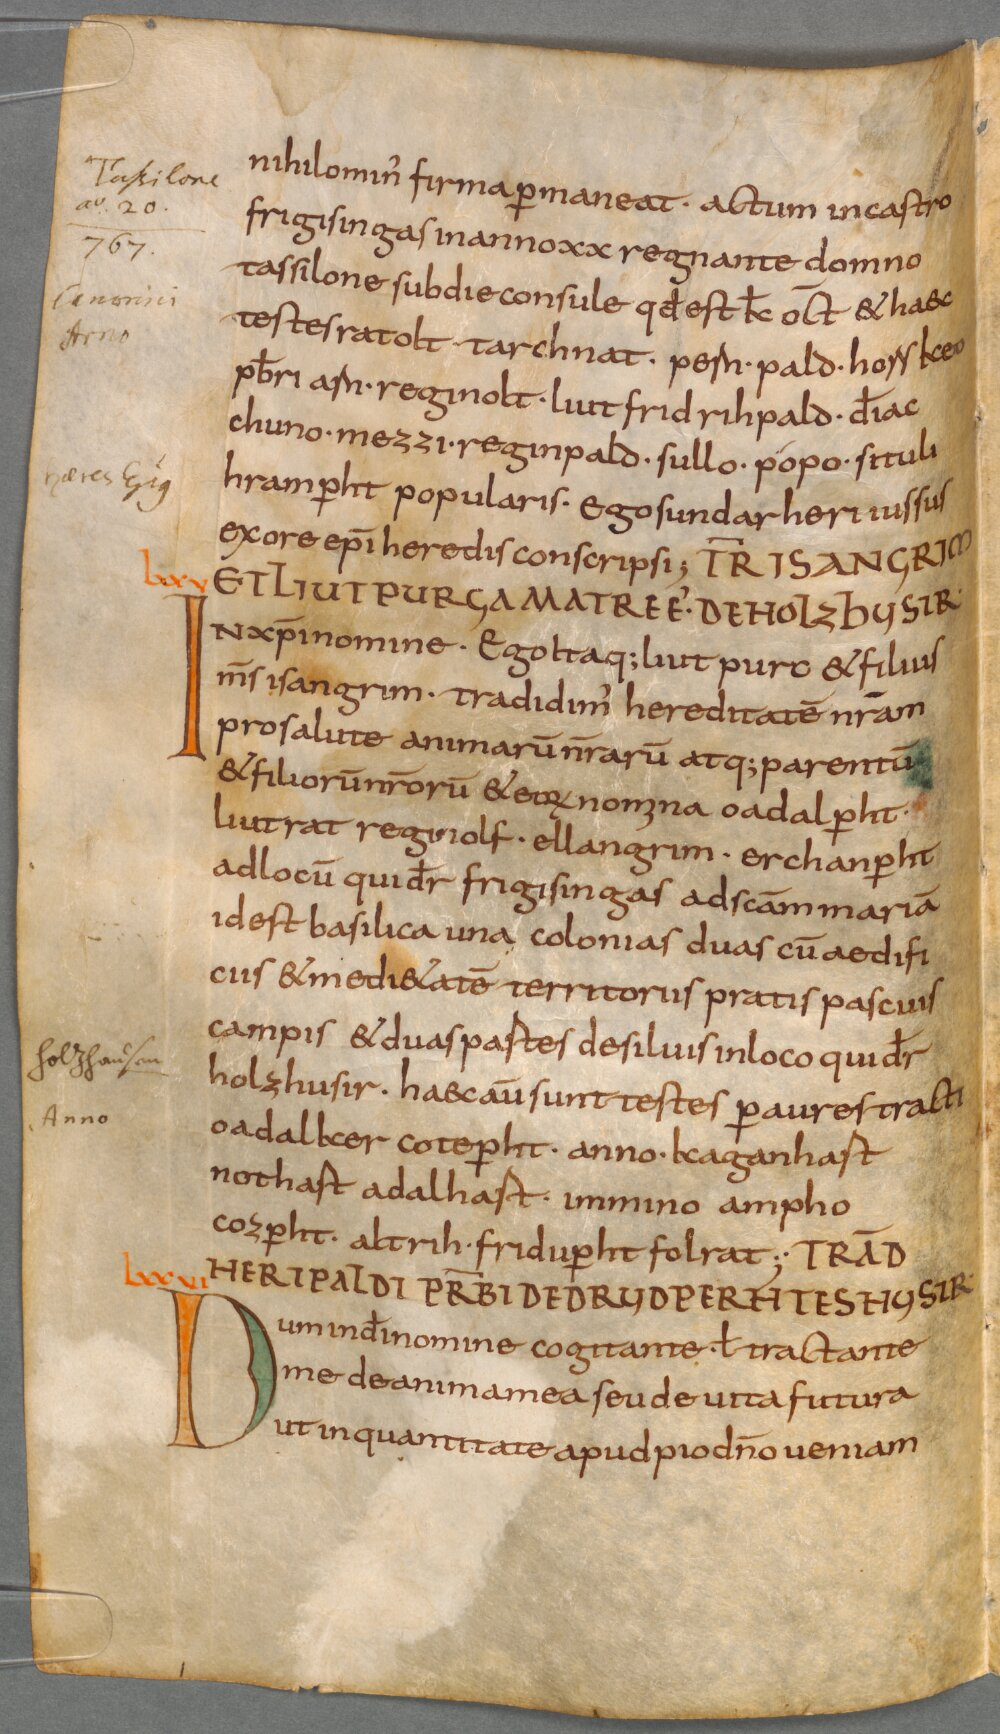 Tassilone
aō. 20.
767.
Canonici
Arno
hæres
holzhausen
Anno
nihilomin᾽ firma p̄maneat · actum incastro
frigisingas inanno xx regnante domno
tassilone subdie consule qđ est kł oc̄t & haec
testes ratolt · tarchnat · pald ·
pb̄ri · reginolt · liutfrid rihpald · điac
chuno · mezzi · reginpald · sullo · popo · situli
hramp̄ht popularis · Ego sundarheri iussus
exore ep̄i heredis conscripsi ; TR̄ ISANGRIM
lxxv
ET LIUTPURGA MATRE E᾽ · DE HOLZHUSIR
IN xp̄i nomine · Ego itaq; liutpurc & filius
m̄s isangrim · tradidim᾽ hereditatē nr̄am
pro salute animarū nr̄arū atq; parentū
& filiorū nr̄orū & eoꝝ nomina oadalp̄ht ·
liutrat reginolf · ellangrim · erchanp̄ht
ad locū qui dr̄ frigisingas ad scām mariā
id est basilica una colonias duas cū aedifi
ciis & medi&atē territoriis pratis pascuis
campis & duas pastes de siluis inloco qui dr̄
holzhusir · haec aū sunt testes p̄ aures tracti
oadalker cotep̄ht · anno · kaganhast
nothast adalhast · immino ampho
cozp̄ht · altrih · fridup̄ht folrat ; · TRAD̄
lxxvi
HERIPALDI PR̄BI DE DRUDPERHTESHUSIR
Dum in đi nomine cogitante · ł tractante
me de anima mea seu de uita futura
ut in quantitate apud pio dn̄o ueniam